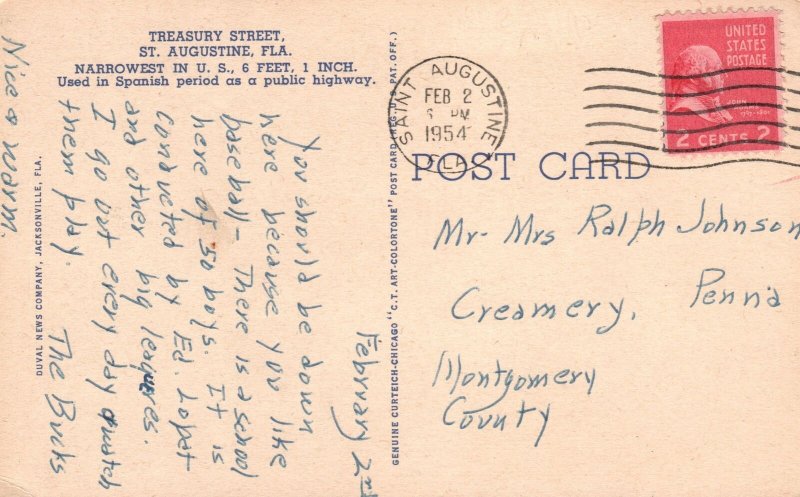 TREASURY STREET,
ST. AUGUSTINE, FLA.
NARROWEST IN U. S., 6 FEET, 1 INCH.
Used in Spanish period as a public highway.
February 2nd
You should be down
here because you like
baseball - There is a school
here of 50 boys. It is
conducted by Ed. Lopat
and other big leagues.
I go out every day & watch
them play.
The Bucks
Nice & warm.
DUVAL NEWS COMPANY, JACKSONVILLE, FLA.
GENUINE CURTEICH-CHICAGO "C.T. ART-COLORTONE" POST CARD (REG. U. S. PAT. OFF.)
SAINT AUGUSTINE
FEB 2
PM
1954
FLA.
UNITED
STATES
POSTAGE
JOHN
2 CENTS 2
POST CARD
Mr - Mrs Ralph Johnson
Creamery, Penna
Montgomery
County